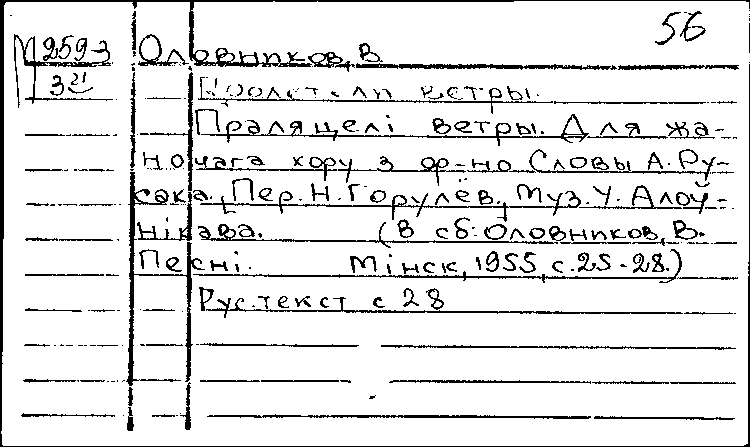 56
М 259-3 Оловников, В.
3 21 Пролетели ветры.
Праляцелі ветры. Для жа-
ночага хору з ф-но Словы А. Ру-
сака. Пер. Н. Горулёв, Муз. У. Алоў-
нікава. (В сб: Оловников, В.
Песні. Мінск, 1955, с. 25-28.)
Рус. текст с 28